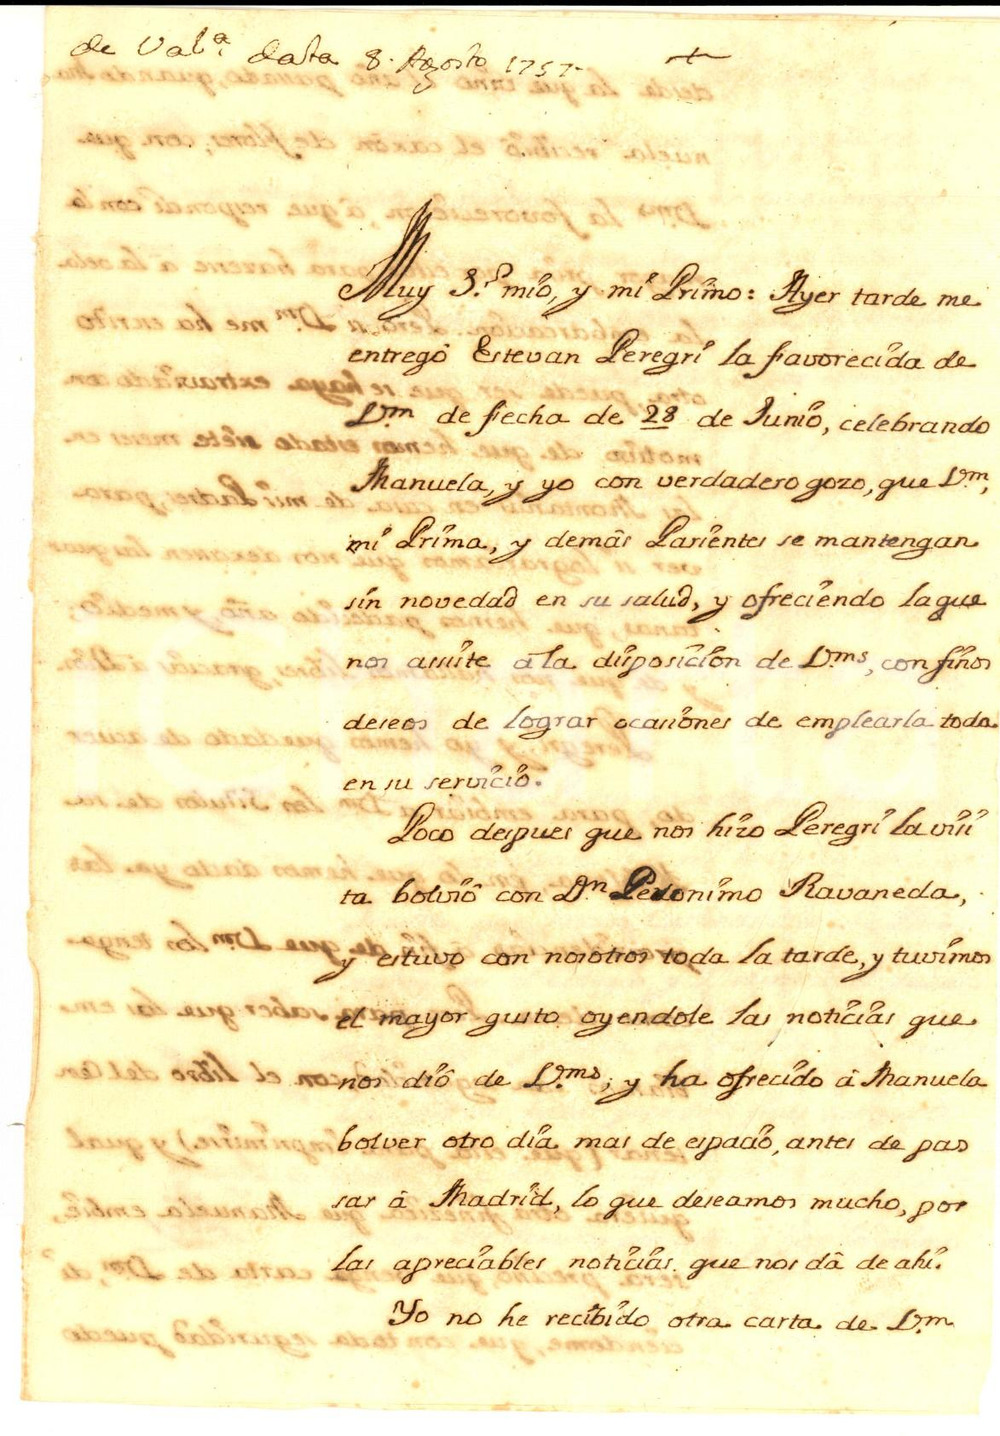 de Valª. data 8. Agosto 1757.
Muy S.r mio, y mi Primo: Ayer tarde me
entregó Estevan Peregrí la favorecida de
Vm. de fecha de 28 de Junio, celebrando
Manuela, y yo con verdadero gozo, que Vm,
mi Prima, y demás Parientes se mantengan
sin novedad en su salud, y ofreciendo la que
nos assiste á la disposicion de Vms, con finos
deseos de lograr ocasiones de emplearla toda
en su servicio.
Poco despues que nos hizo Peregrí la visi
ta bolvió con Dn Geronimo Ravaneda,
y estuvo con nosotros toda la tarde, y tuvimos
el mayor gusto oyendole las noticias que
nos dió de Vms; y ha ofrecido á Manuela
bolver otro dia mas de espacio, antes de pas
sar á Madrid, lo que deseamos mucho, por
las apreciables noticias que nos dá de ahi.
Yo no he recibido otra carta de Vm